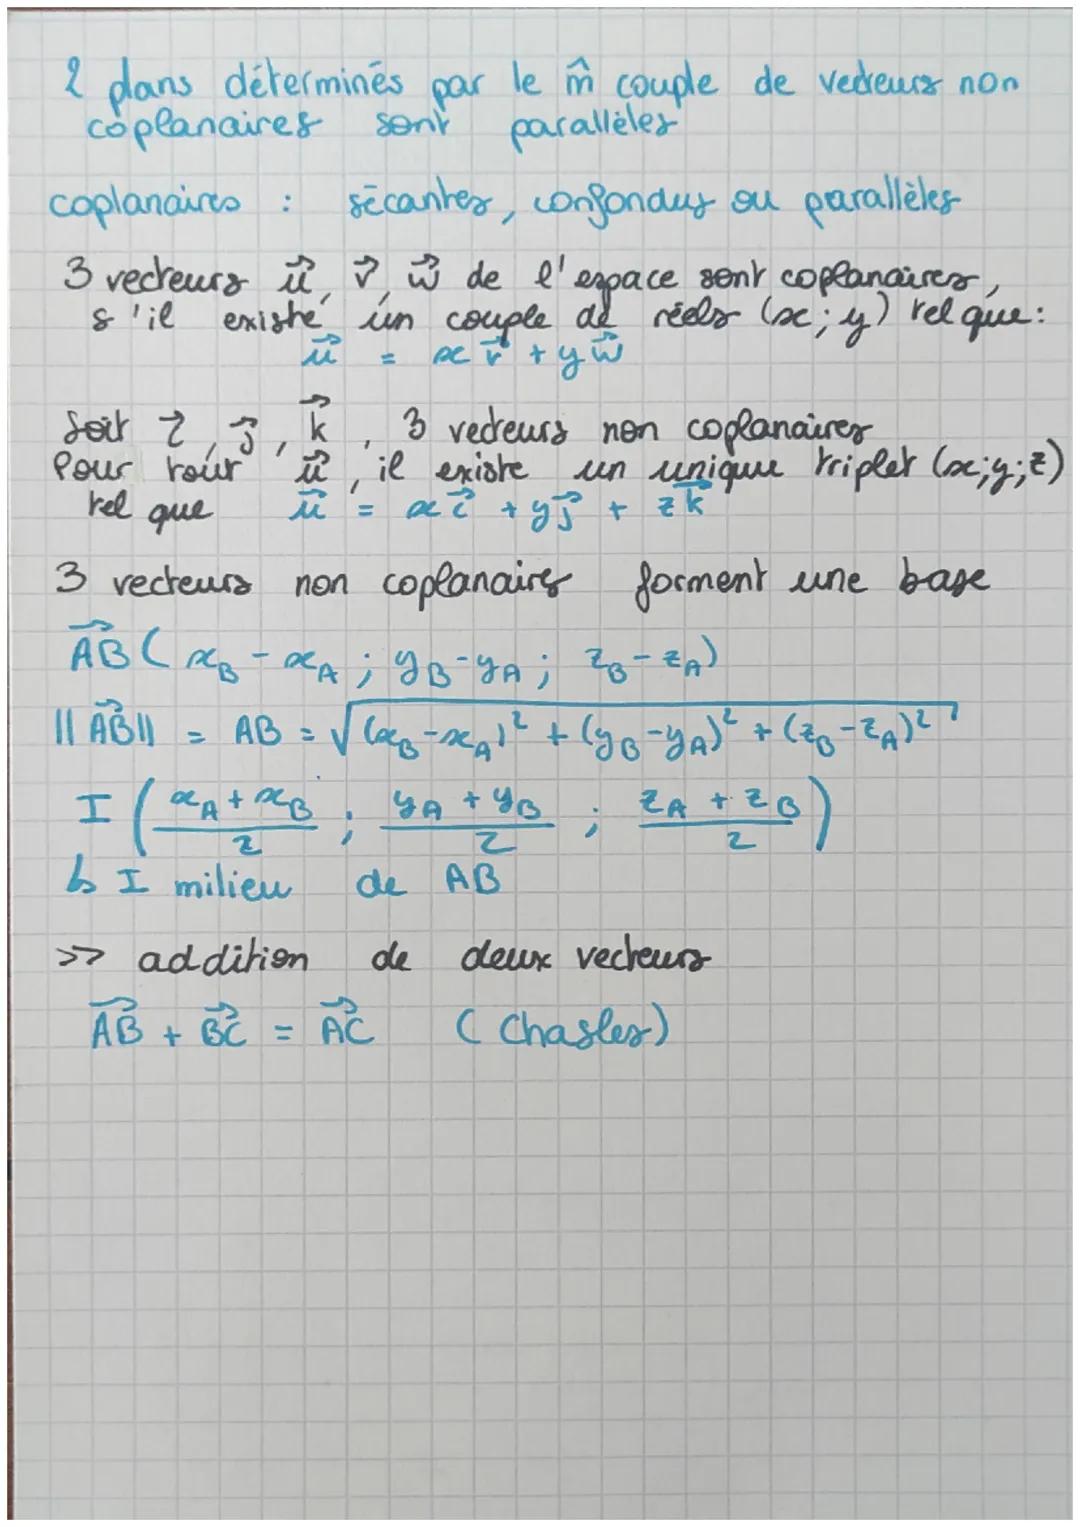 2 plans déterminés par le m̂ couple de vecteurs non
coplanaires sont parallèles
coplanaires : sécantes, confondus ou parallèles
3 vecteurs u⃗, v⃗, w⃗ de l'espace sont coplanaires,
s'il existe un couple de réels (x; y) tel que:
u⃗ = x v⃗ + y w⃗
Soit i⃗, j⃗, k⃗, 3 vecteurs non coplanaires
Pour tout u⃗, il existe un unique triplet (x;y;z)
tel que u⃗ = x i⃗ + y j⃗ + z k⃗
3 vecteurs non coplanaires forment une base
A⃗B⃗ ( x_B - x_A ; y_B - y_A ; z_B - z_A)
|| A⃗B⃗ || = AB = √(x_B - x_A)² + (y_B - y_A)² + (z_B - z_A)²
I ( (x_A + x_B)/2 ; (y_A + y_B)/2 ; (z_A + z_B)/2 )
↳ I milieu de AB
>> addition de deux vecteurs
A⃗B⃗ + B⃗C⃗ = A⃗C⃗ (Chasles)